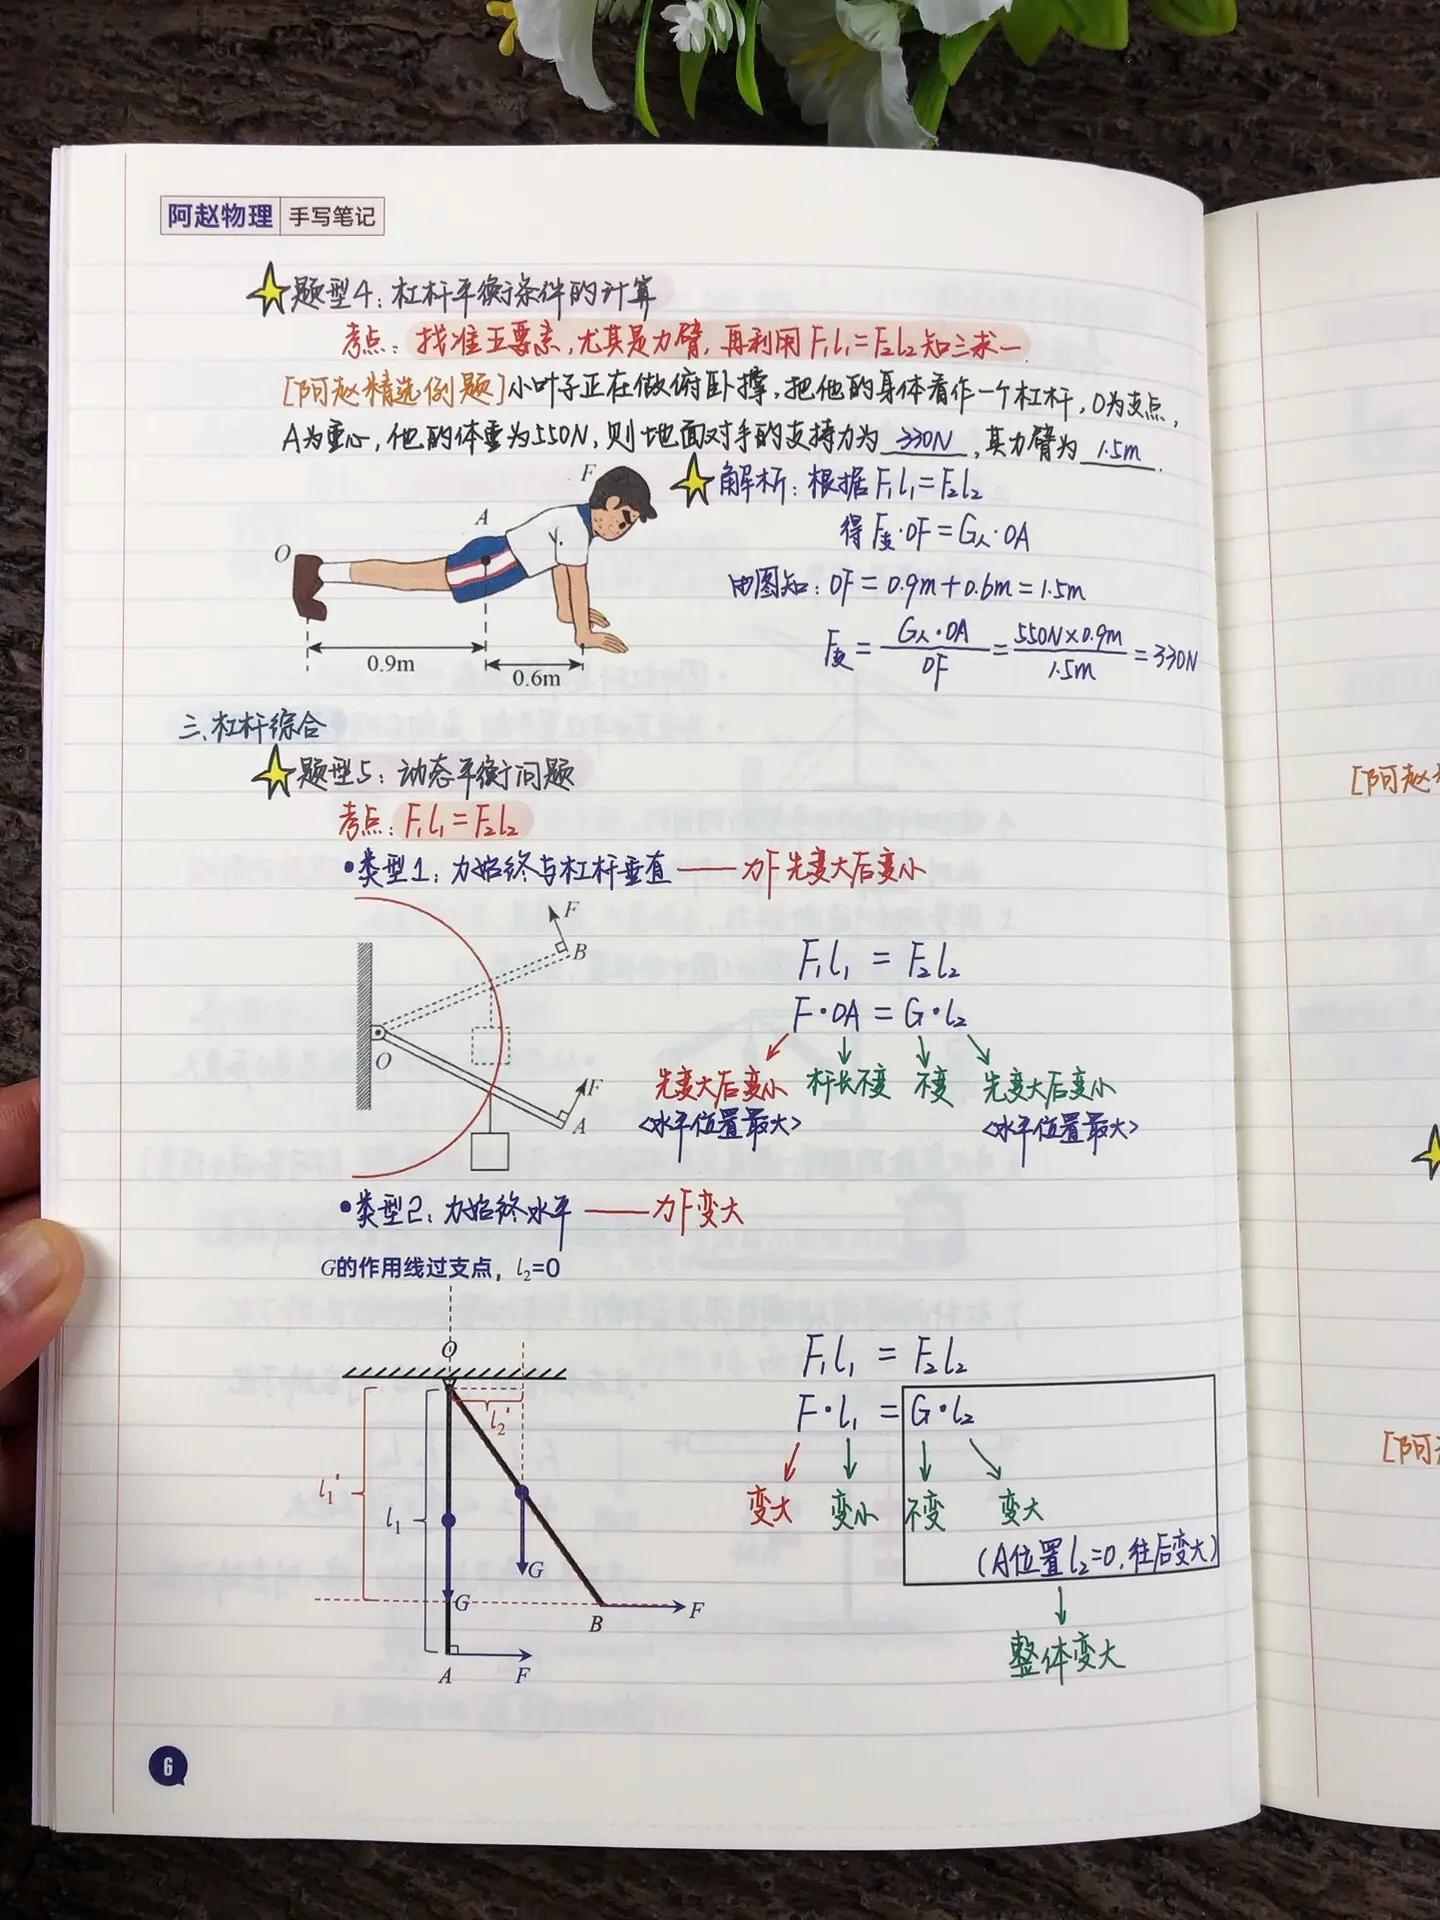 阿赵物理 手写笔记
题型4：杠杆平衡条件的计算
考点：找准五要素，尤其是力臂，再利用F₁l₁=F₂l₂知三求一.
[阿赵精选例题]小叶子正在做俯卧撑，把他的身体看作一个杠杆，O为支点，
A为重心，他的体重为550N，则地面对手的支持力为 330N ，其力臂为 1.5m .
F
A
O
0.9m
0.6m
解析：根据F₁l₁=F₂l₂
得F支·OF=G人·OA
由图知：OF=0.9m+0.6m=1.5m
F支=G人·OA/OF=550N×0.9m/1.5m=330N
三、杠杆综合
题型5：动态平衡问题
考点：F₁l₁=F₂l₂
•类型1：力始终与杠杆垂直——力F先变大后变小
F
B
O
F
A
F₁l₁=F₂l₂
F·OA=G·l₂
先变大后变小 杆长不变 不变 先变大后变小
<水平位置最大> <水平位置最大>
•类型2：力始终水平——力F变大
G的作用线过支点，l₂=0
O
l₂'
l₁'
l₁
G
G
B
F
A
F
F₁l₁=F₂l₂
F·l₁=G·l₂
变大 变小 不变 变大
(A位置l₂=0，往后变大)
整体变大
6
[阿赵
[阿